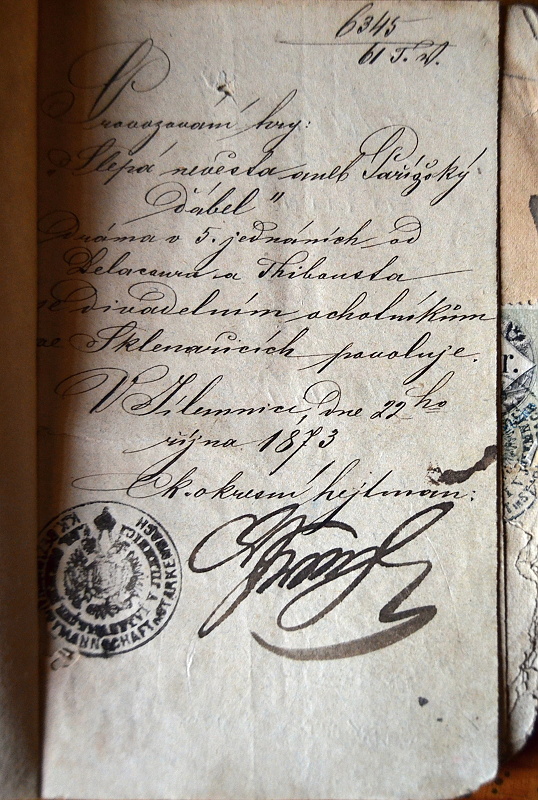 6345
61 T. N.
Provozování hry:
„Slepá nevěsta aneb Pařížský
ďábel"
drama v 5. jednáních od
Delacoura a Thibousta
se divadelním ochotníkům
ve Sklenařicích povoluje.
V Jilemnici, dne 22ho
října 1873
C. k. okresní hejtman: